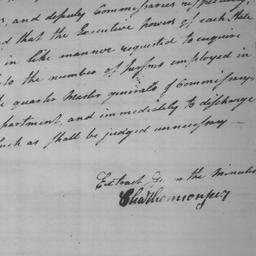 and deputy Commissaries respectively,
that the Executive powers of each State
in like manner requested to enquire
to the number of persons employed in
quarter Master generals & Commissary
partment, and immediately to discharge
such as shall be judged unnecessary —
Extract from the Minutes
Cha Thomson secy